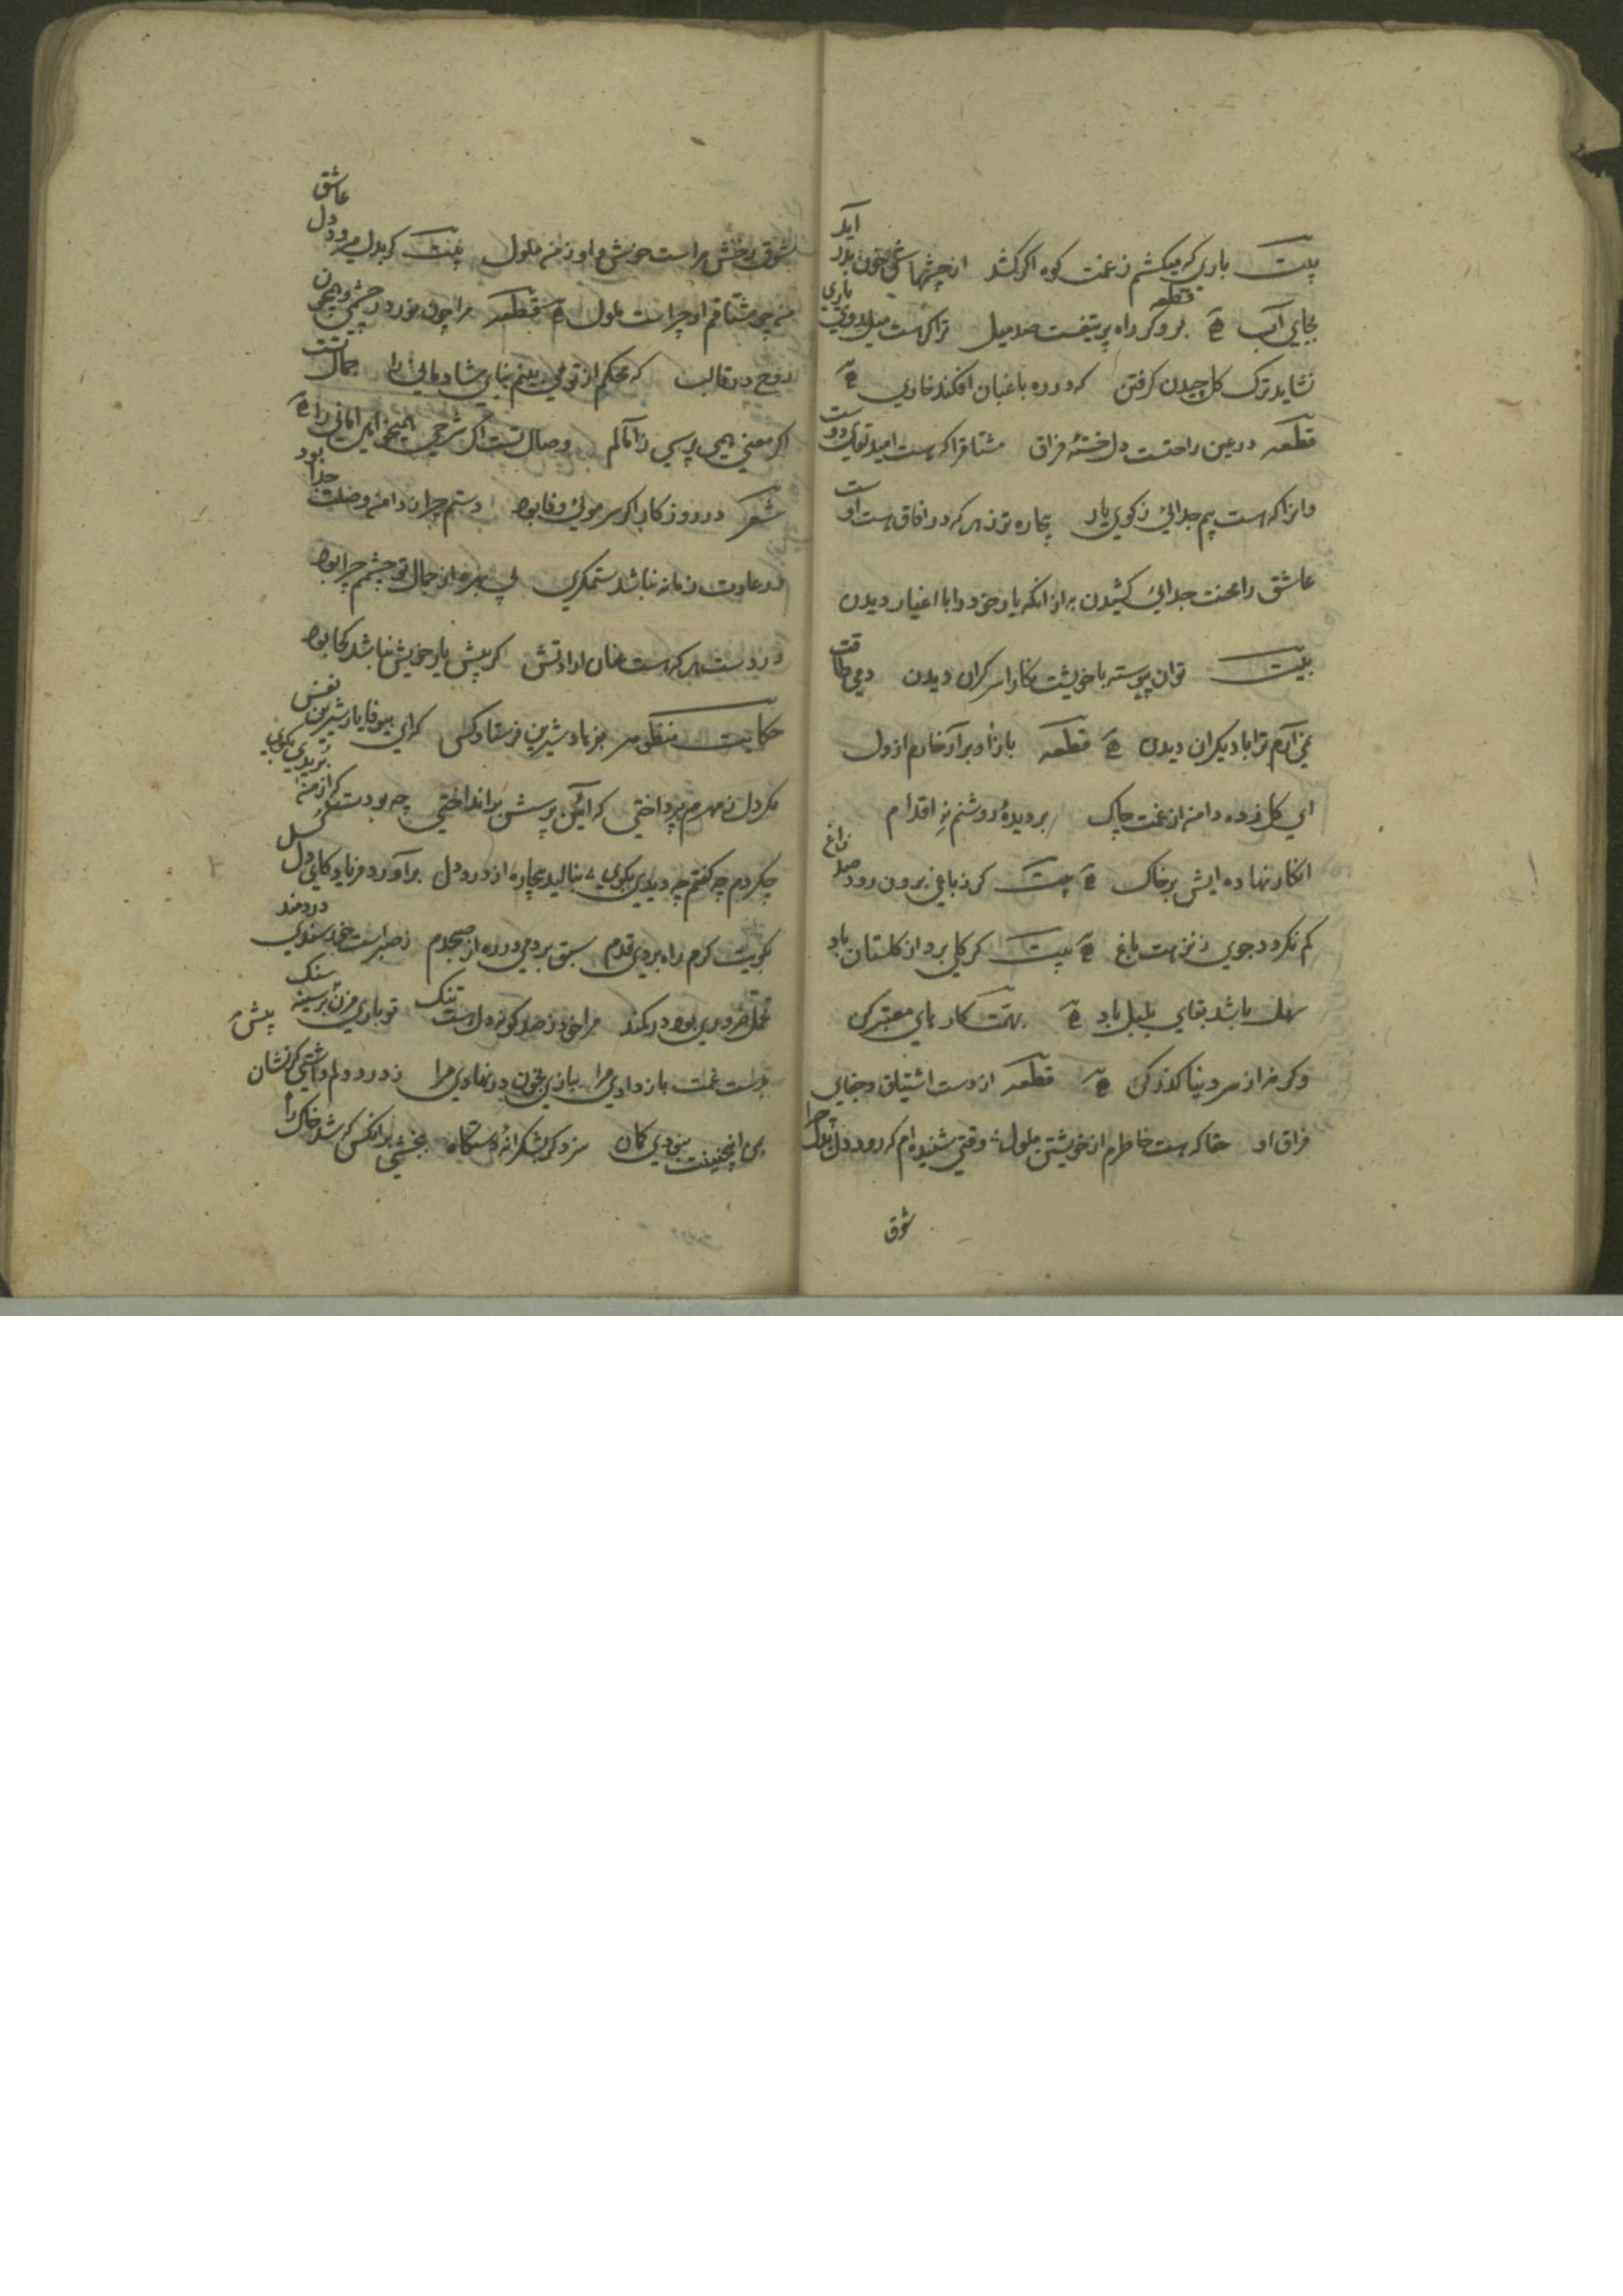 بیت باری که میکشم ز غمت کوه اگر کشد از چشمهاش خون بدر آید
بجای آب قطعه بر و گر راه پر تیغست صد میل ترا گر هست میل روی یاری
نشاید ترک گل چیدن گرفتن که در ره باغبان افکند خاری
قطعه در عین راحتست دل خستهٔ فراق مشتاق را که هست امید تو دوست
وانرا که هست بیم جدائی ز کوی یار بیچاره تر ز هر که در افاق هست او
عاشق را محنت جدائی کشیدن به از انکه یار خود را با اغیار دیدن
بیت توان پیوسته با خویشت نکارا سر کران دیدن دمی طاقت
نمی آرم ترا با دیکران دیدن قطعه باز آ و برآر خارم از دل
ای کل زده دامن از غمت چاک بر دیدهٔ روشنم نه اقدام
انکار نهاده ایش بر خاک بیت کر ز باغی برون رود صد زاغ
کم نکردد جوی ز نزهت باغ بیت کر کلی برد از کلستان باد
سهل باشد بقای بلبل باد بهمت کارهای معتبر کن
وکرنه از سر دنیا کذر کن قطعه از دست اشتیاق و جفای
فراق او حقا که هست خاطرم از خویشتن ملول وقتی شنیده ام که رود دل بدل چرا
شوق
شوق رخش مراست خوش و او ز من ملول بیت کر بدل میرود دل عاشق
من چو مشتاقم او چراست ملول قطعه مرا چون نور در چشمی و همچون
روح در قالب که محکم از تو می بینم بنای شادمانی را جمال تست
اکر معنی همی پرسی ز آمالم وصال تست اکر شرحی همیخواهی امانی را
شعر در روزکار اکر سر موئی وفا بود دستم چرا ز دامن وصلت جدا بود
در عادت زمانه نباشد ستمکری بی بهره از جمال تو چشمم چرا بود
در دست هر که هست عنان ارادتش کر پیش یار خویش نباشد کجا بود
حکایت منظومه بفرهاد شیرین فرستاد کس که ای بیوفا یار شیرین نفس
مکر دل ز مهرم بپرداختی که آئین پرسش برانداختی چه بودست کز من بریدی بکوی
چکردم چه کفتم چه دیدی بکوی بنالید بیچاره از درد دل برآورد فریاد کای دل کسل
بکویت کرم راه بردی قدم سبق بردمی در ره از صبحدم ز صبر است خرسندی دردمند
تحمل ضروری بود در کمند مرا خود ز صد کونه دل است تنک تو باری مزن بر سینه سنک
بدست غمت باز دادی مرا ببازی بخون در نهادی مرا ز درد دلم داشتی کر نشان
من اینچنینت نبودی کمان سزد کر بشکرانهٔ دستکاه ببخشی بر انکس که شد خاک راه